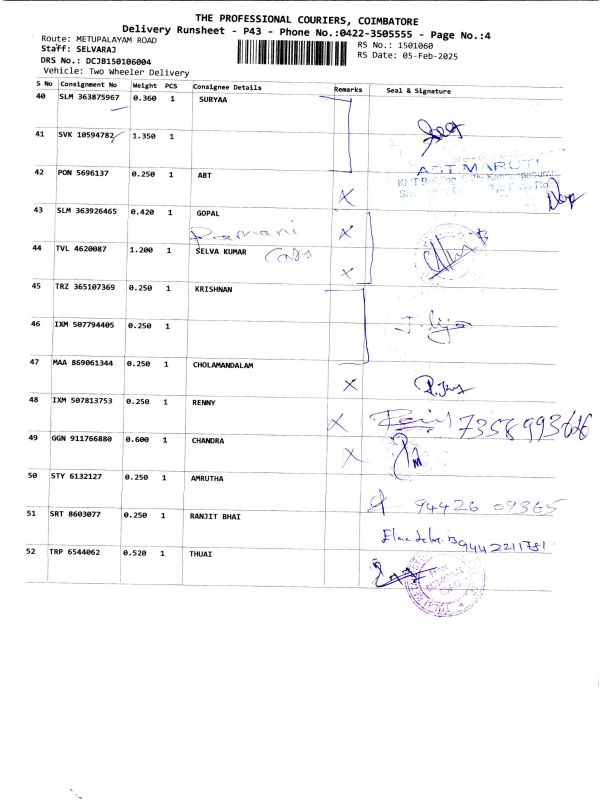 THE PROFESSIONAL COURIERS, COIMBATORE
Delivery Runsheet - P43 - Phone No.:0422-3505555 - Page No.:4
Route: METUPALAYAM ROAD
Staff: SELVARAJ
DRS No.: DCJB150106004
Vehicle: Two Wheeler Delivery
RS No.: 1501060
RS Date: 05-Feb-2025
S No Consignment No Weight PCS Consignee Details Remarks Seal & Signature
40 SLM 363875967 0.360 1 SURYAA
41 SVK 10594782 1.350 1
ABT MARUTI
42 PON 5696137 0.250 1 ABT X
43 SLM 363926465 0.420 1 GOPAL
X
44 TVL 4620087 1.200 1 SELVA KUMAR
X
45 TRZ 365107369 0.250 1 KRISHNAN
46 IXM 507794405 0.250 1
47 MAA 869061344 0.250 1 CHOLAMANDALAM
X
48 IXM 507813753 0.250 1 RENNY
X 7358993626
49 GGN 911766880 0.600 1 CHANDRA
X
50 STY 6132127 0.250 1 AMRUTHA
94426 09365
51 SRT 8603077 0.250 1 RANJIT BHAI
9442211781
52 TRP 6544062 0.520 1 THUAI